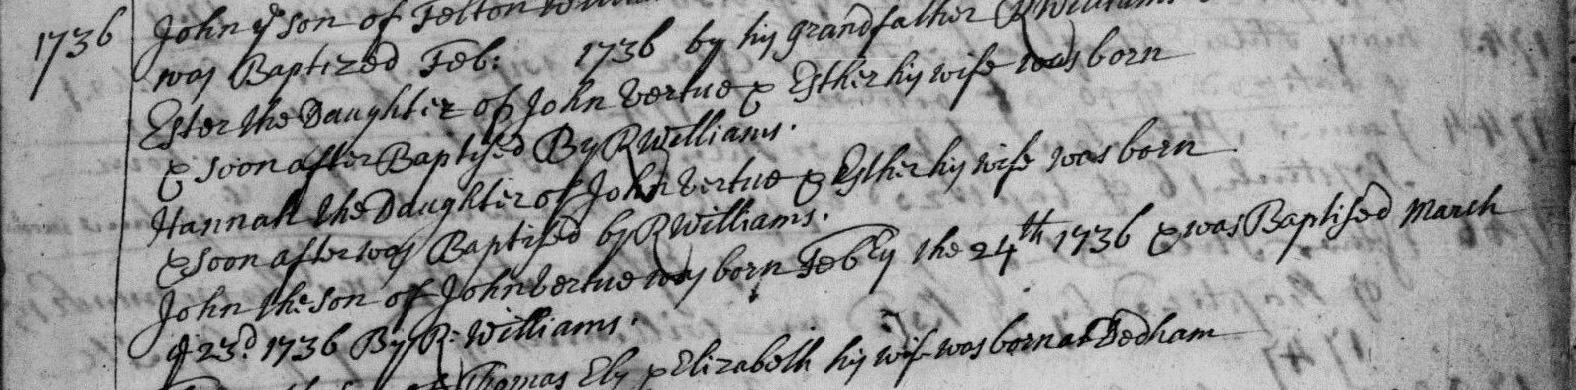 1736 John ye Son of Felton
was Baptized Feb: 1736 by his grandfather R Williams
Ester the Daughter of John Vertue & Esther his wife was born
& soon after Baptised By R Williams.
Hannah the Daughter of John Vertue & Esther his wife was born
& soon after was Baptised by R Williams.
John the Son of John Vertue was born Febry the 24th 1736 & was Baptised March
ye 23d 1736 By R: Williams.
Thomas Ely & Elizabeth his wife was born at Dedham